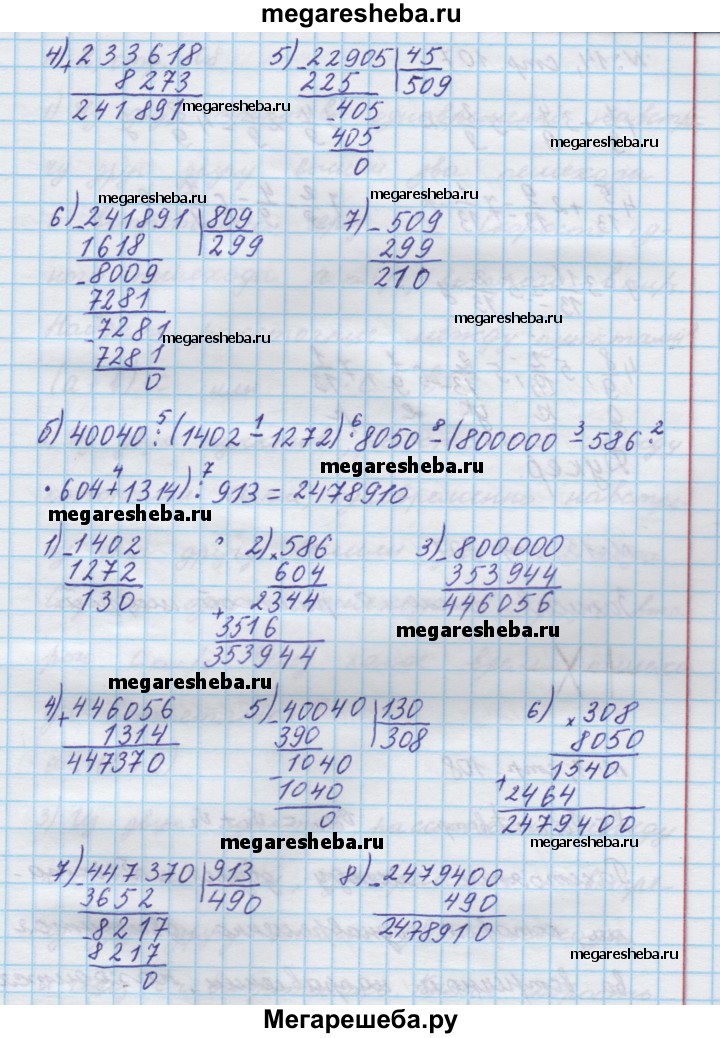 megaresheba.ru
4) + 233618 5) - 22905 | 45
8273 225 | 509
241891 - 405
megaresheba.ru megaresheba.ru
405
0
megaresheba.ru megaresheba.ru
6) - 241891 | 809 7) - 509
1618 | 299 299
- 8009 210
7281
megaresheba.ru
- 7281 megaresheba.ru
7281
0
5 1 6 8 3 2
б) 40040 : (1402 - 1272) · 8050 - (800000 - 586 ·
megaresheba.ru
4 7
· 604 + 1314) : 913 = 2478910
megaresheba.ru
1) - 1402 2) × 586 3) - 800000
1272 604 353944
130 + 2344 446056
3516 megaresheba.ru
353944
megaresheba.ru
4) + 446056 5) - 40040 | 130 6) × 308
1314 390 | 308 8050
447370 - 1040 + 1540
1040 2464
0 2479400
megaresheba.ru megaresheba.ru
7) - 447370 | 913 8) - 2479400
3652 | 490 490
- 8217 2478910
8217 megaresheba.ru
0
Мегарешеба.ру